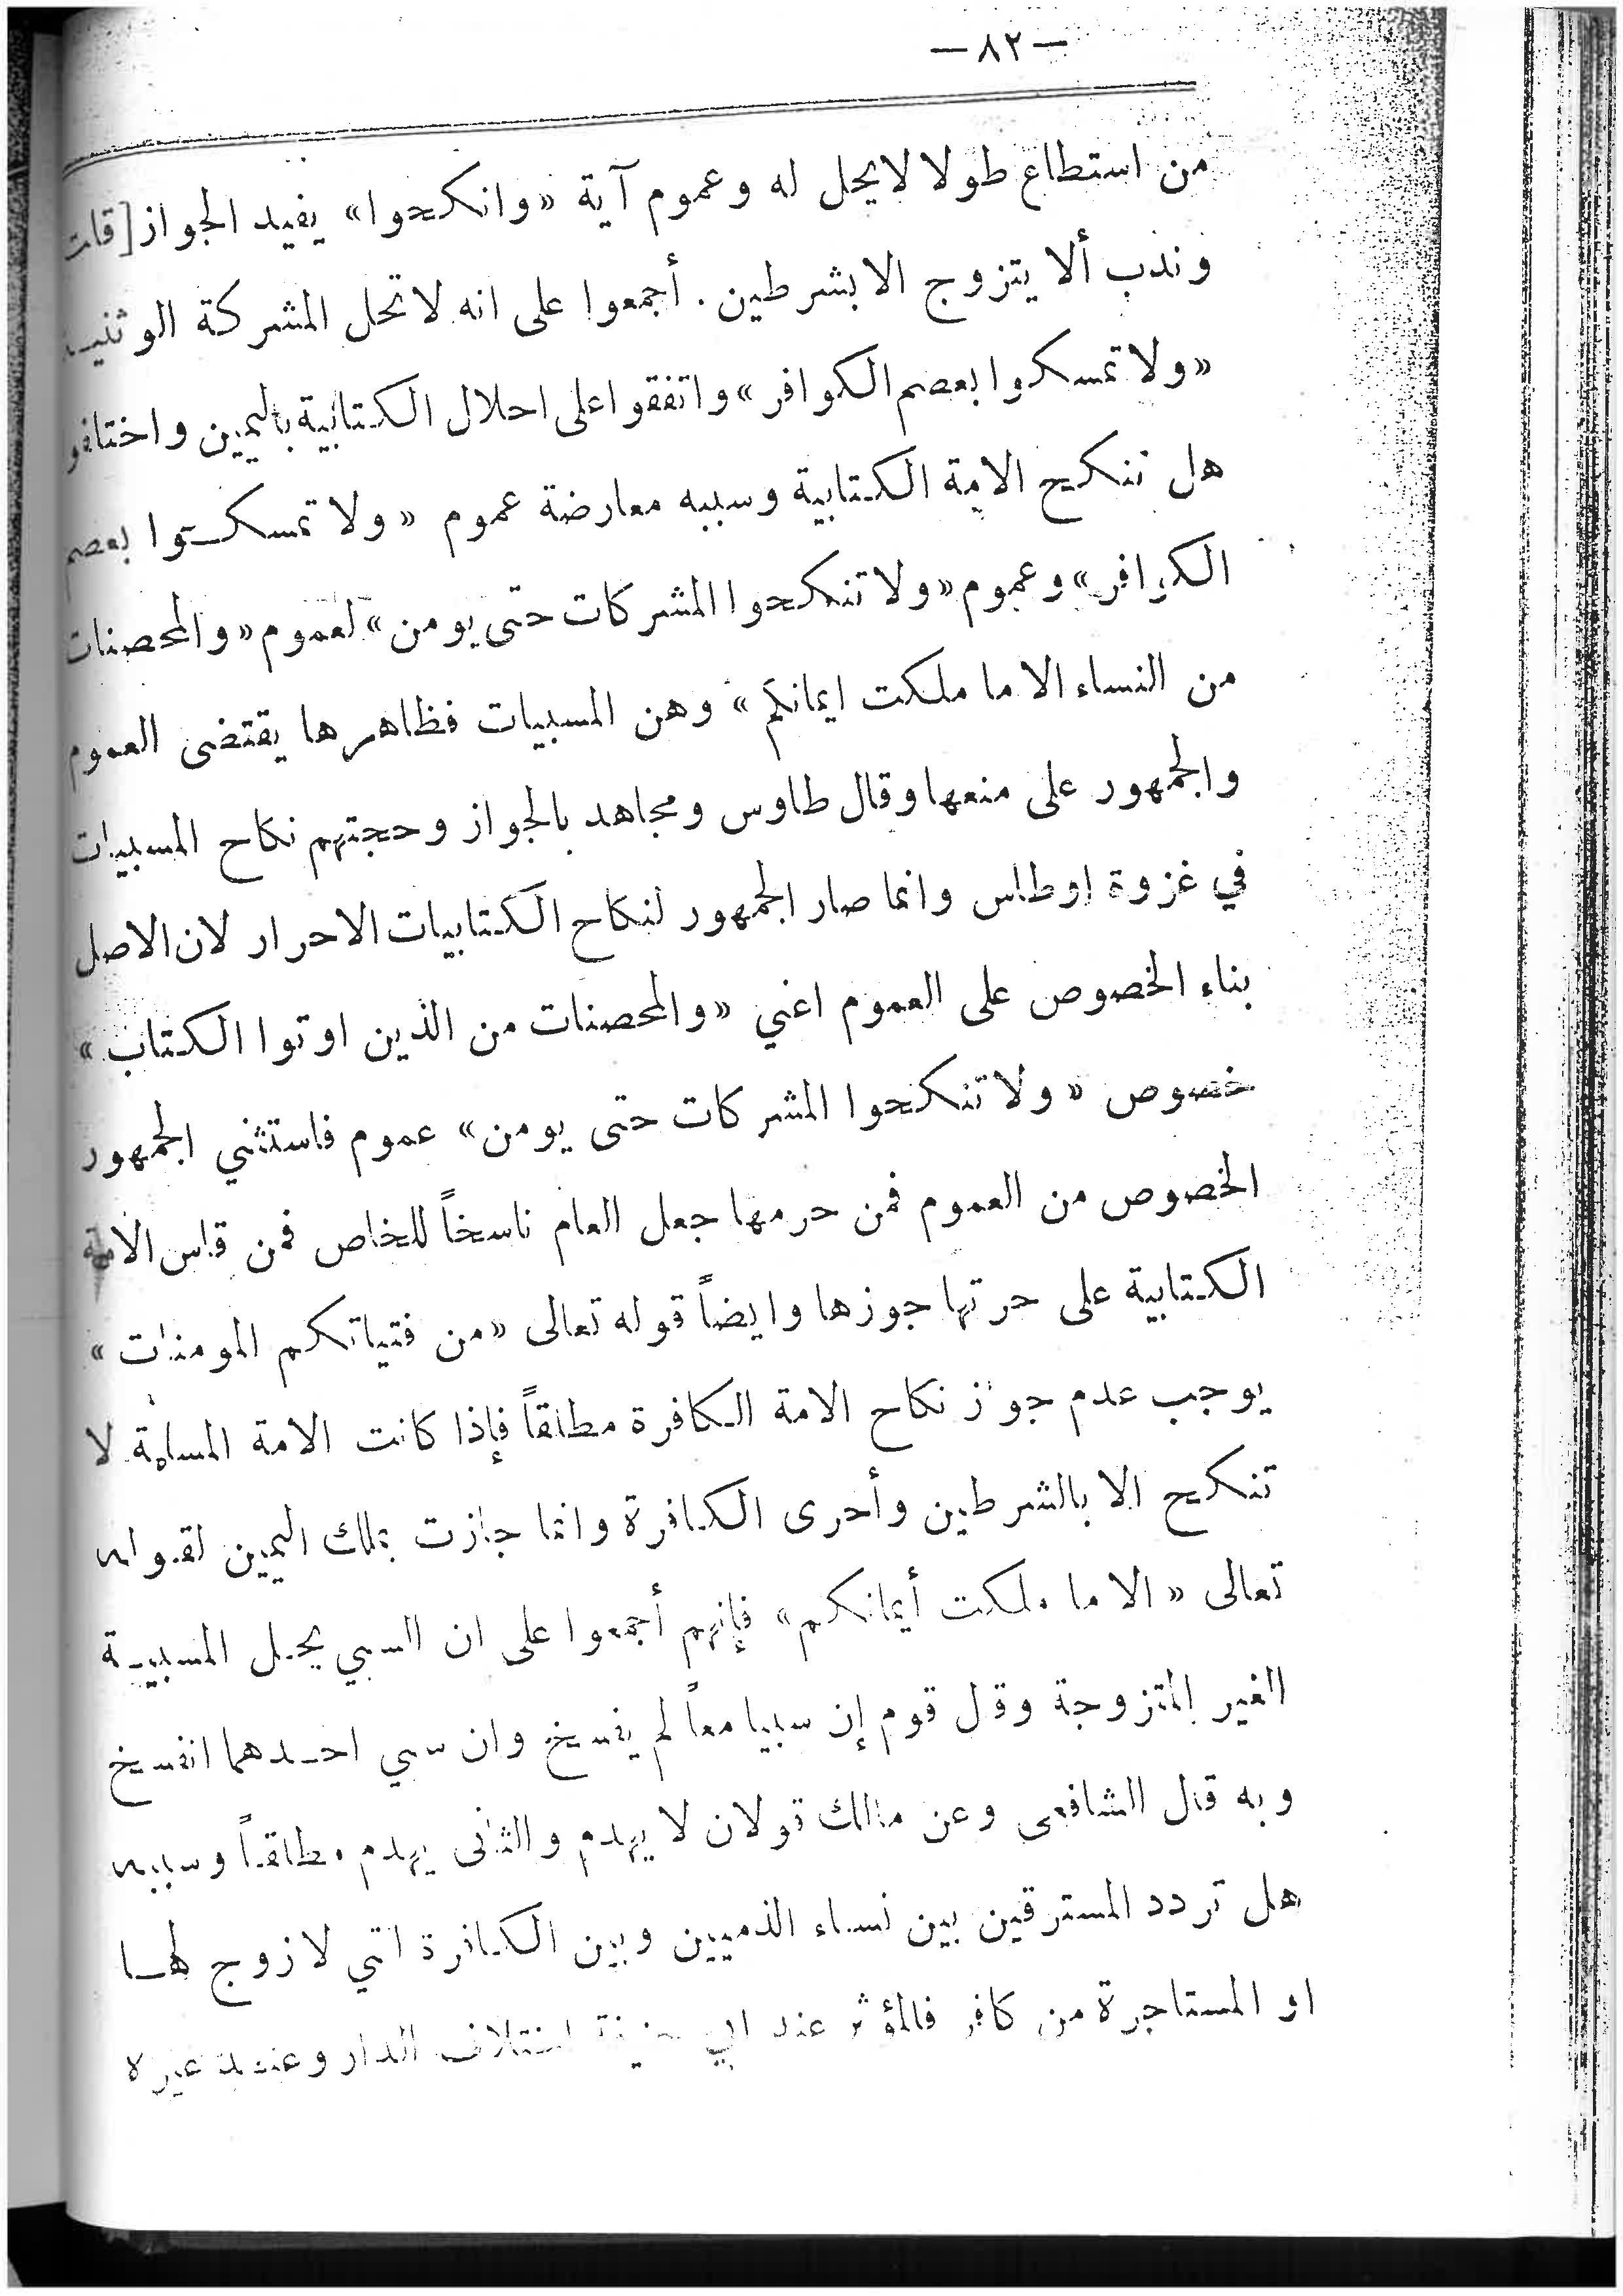 —٨٢—
من استطاع طولا لايحل له وعموم آية «وانكحوا» يفيد الجواز [قلت
وندب ألا يتزوج الا بشرطين . أجمعوا على انه لاتحل المشركة الوثنية
«ولا تمسكوا بعصم الكوافر» واتفقوا على احلال الكتابية باليمين واختلفو
هل تنكح الامة الكتابية وسببه معارضة عموم «ولا تمسكوا بعصم
الكوافر» وعموم «ولا تنكحوا المشركات حتى يومن» لعموم «والمحصنات
من النساء الا ما ملكت ايمانكم» وهن المسبيات فظاهرها يقتضى العموم
والجمهور على منعها وقال طاوس ومجاهد بالجواز وحجتهم نكاح المسبيات
في غزوة اوطاس وانما صار الجمهور لنكاح الكتابيات الاحرار لان الاصل
بناء الخصوص على العموم اعني «والمحصنات من الذين اوتوا الكتاب»
خصوص «ولا تنكحوا المشركات حتى يومن» عموم فاستثني الجمهور
الخصوص من العموم فمن حرمها جعل العام ناسخاً للخاص فمن قاس الامة
الكتابية على حرتها جوزها وايضاً قوله تعالى «من فتياتكم المومنات»
يوجب عدم جواز نكاح الامة الكافرة مطلقاً فإذا كانت الامة المسلمة لا
تنكح الا بالشرطين وأحرى الكافرة وانما جازت بملك اليمين لقوله
تعالى «الا ما ملكت أيمانكم» فإنهم أجمعوا على ان السبي يحل المسبية
الغير المتزوجة وقل قوم إن سبيا معاً لم يفسخ وان سبي احدهما انفسخ
وبه قال الشافعى وعن مالك قولان لا يهدم والثانى يهدم مطلقاً وسببه
هل تردد المسترقين بين نساء الذميين وبين الكافرة التي لا زوج لها
او المستاجرة من كافر فالمؤثر عند ابي حنيفة اختلاف الدار وعند غيره